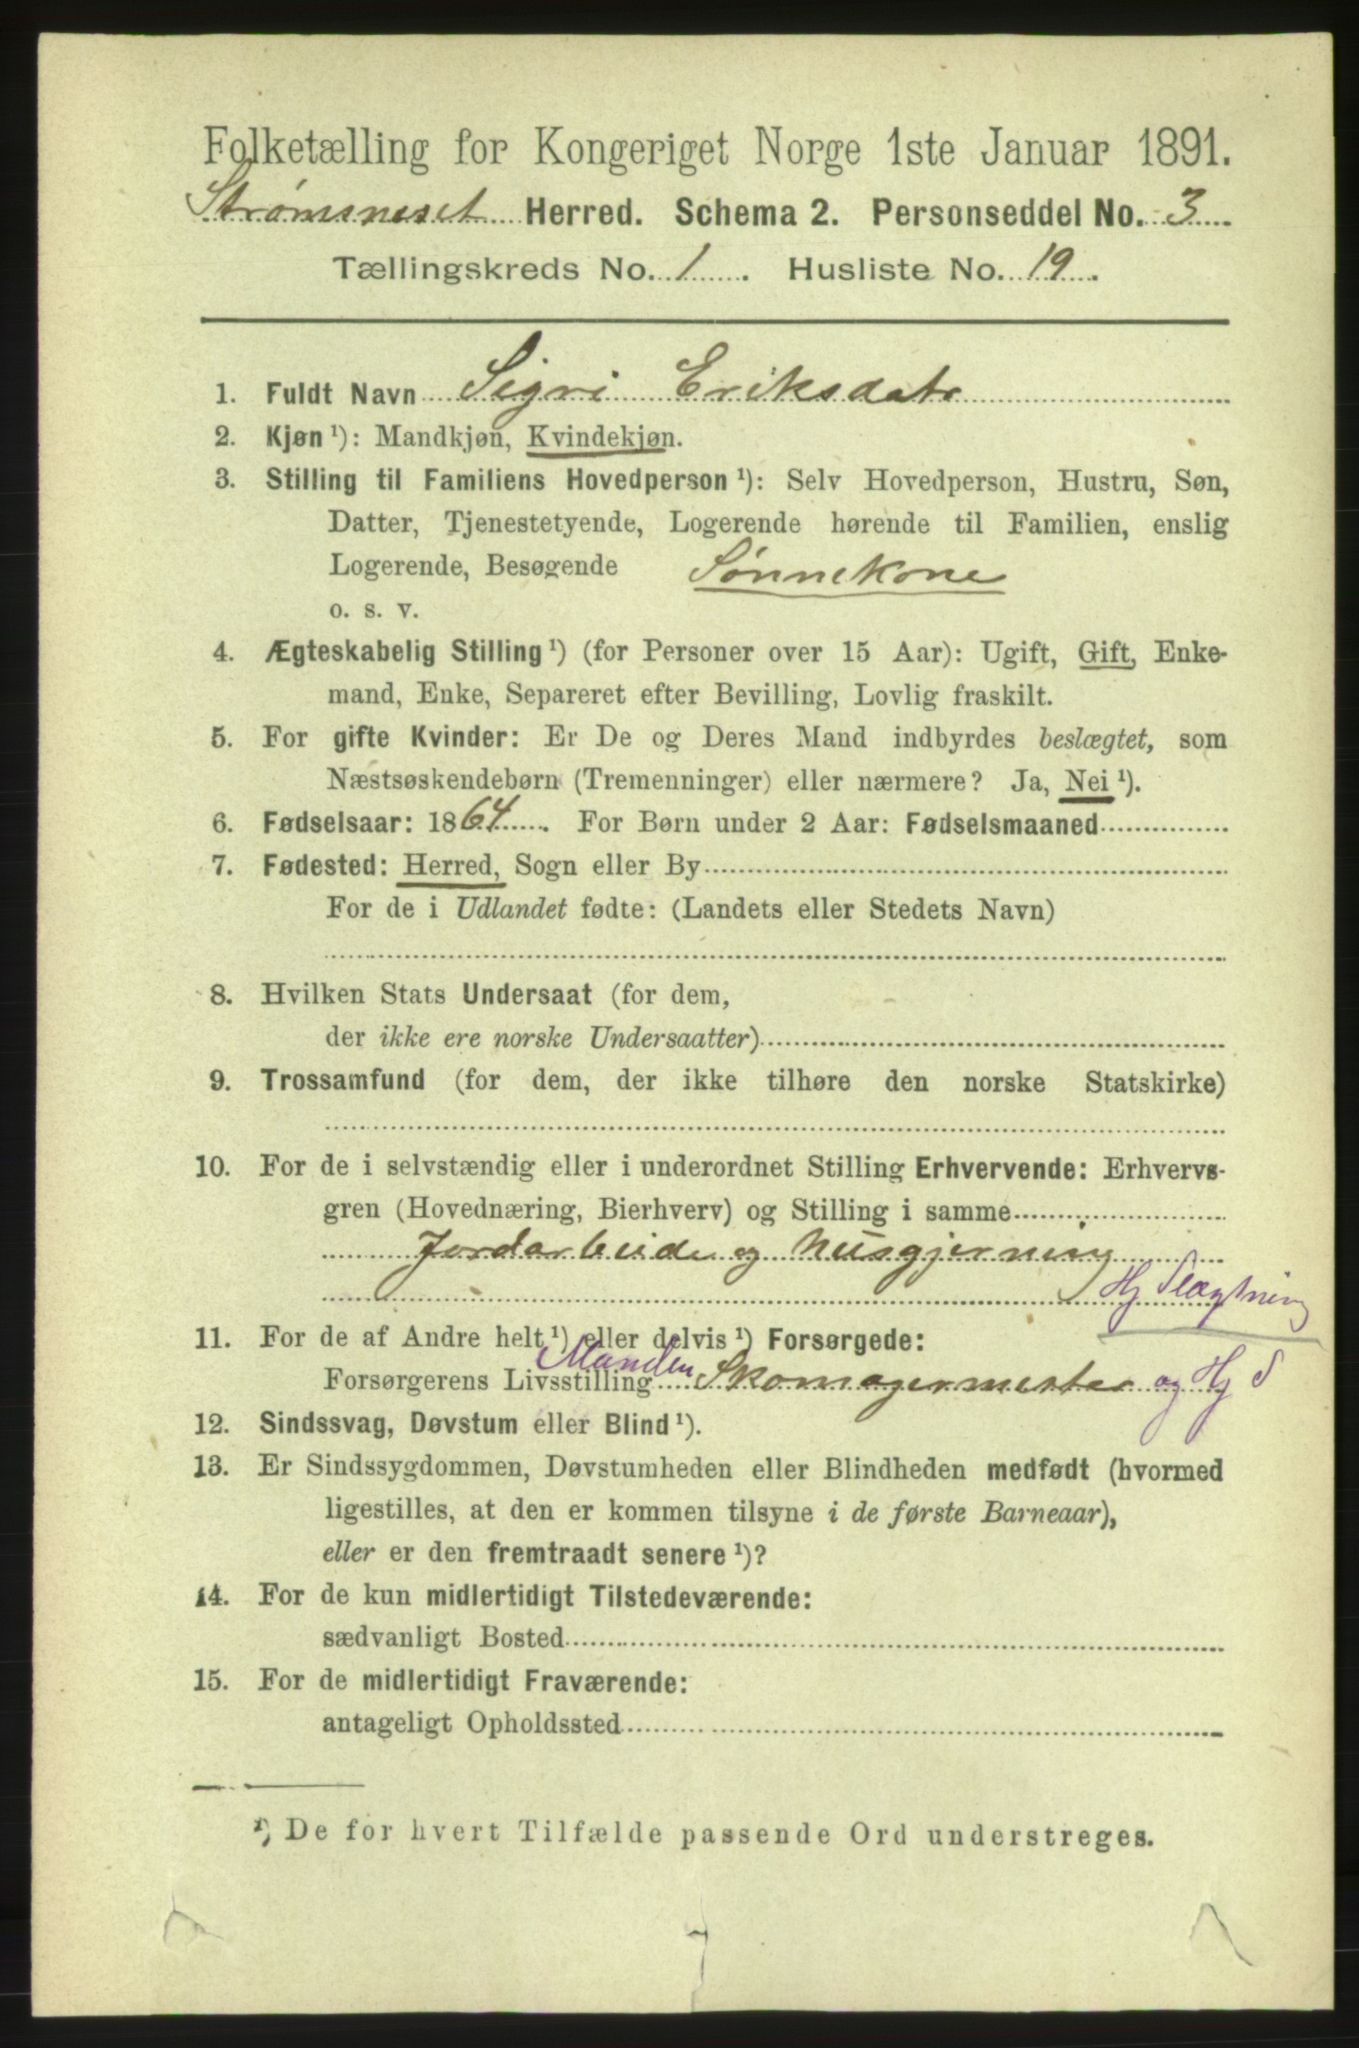 Folketælling for Kongeriget Norge 1ste Januar 1891.
Strømsneset Herred. Schema 2. Personseddel No. 3
Tællingskreds No. 1. Husliste No. 19.
1. Fuldt Navn Sigri Eriksdatr
2. Kjøn ¹): Mandkjøn, Kvindekjøn.
3. Stilling til Familiens Hovedperson ¹): Selv Hovedperson, Hustru, Søn,
Datter, Tjenestetyende, Logerende hørende til Familien, enslig
Logerende, Besøgende Sønnekone
o. s. v.
4. Ægteskabelig Stilling ¹) (for Personer over 15 Aar): Ugift, Gift, Enke-
mand, Enke, Separeret efter Bevilling, Lovlig fraskilt.
5. For gifte Kvinder: Er De og Deres Mand indbyrdes beslægtet, som
Næstsøskendebørn (Tremenninger) eller nærmere? Ja, Nei ¹).
6. Fødselsaar: 1864. For Børn under 2 Aar: Fødselsmaaned
7. Fødested: Herred, Sogn eller By
For de i Udlandet fødte: (Landets eller Stedets Navn)
8. Hvilken Stats Undersaat (for dem,
der ikke ere norske Undersaatter)
9. Trossamfund (for dem, der ikke tilhøre den norske Statskirke)
10. For de i selvstændig eller i underordnet Stilling Erhvervende: Erhvervs-
gren (Hovednæring, Bierhverv) og Stilling i samme
Jordarbeide og husgjerning
Hj Slægtning
11. For de af Andre helt ¹) eller delvis ¹) Forsørgede:
Forsørgerens Livsstilling Manden Skomagermester og Hj S
12. Sindssvag, Døvstum eller Blind ¹).
13. Er Sindssygdommen, Døvstumheden eller Blindheden medfødt (hvormed
ligestilles, at den er kommen tilsyne i de første Barneaar),
eller er den fremtraadt senere ¹)?
14. For de kun midlertidigt Tilstedeværende:
sædvanligt Bosted
15. For de midlertidigt Fraværende:
antageligt Opholdssted
¹) De for hvert Tilfælde passende Ord understreges.